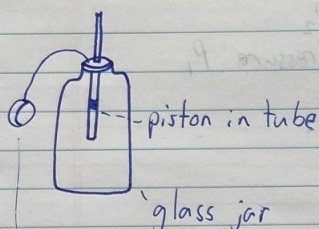 piston in tube
glass jar